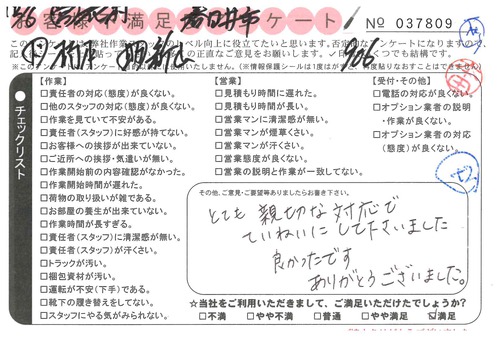 お客様満足度アンケート!
No 037809
【作業】
□責任者の対応(態度)が良くない。
□他のスタッフの対応(態度)が良くない。
□作業を見ていて不安がある。
□責任者(スタッフ)に好感が持てない。
□お客様への挨拶が出来ていない。
□ご近所への挨拶・気遣いが無い。
□作業開始前の内容確認がなかった。
□作業開始時間が遅れた。
□荷物の取り扱いが雑である。
□お部屋の養生が出来ていない。
□作業時間が長すぎる。
□責任者(スタッフ)に清潔感が無い。
□責任者(スタッフ)が汗くさい。
□トラックが汚い。
□梱包資材が汚い。
□運転が不安(下手)である。
□靴下の履き替えをしてない。
□スタッフにやる気がみられない。
【営業】
□見積もり時間に遅れた。
□見積もり時間が長い。
□営業マンに清潔感が無い。
□営業マンが煙草くさい。
□営業マンが汗くさい。
□営業態度が良くない。
□営業の説明と作業が一致してない。
【受付・その他】
□電話の対応が良くない。
□オプション業者の説明
・作業が良くない。
□オプション業者の対応
(態度)が良くない。
チェックリスト
その他、ご意見・ご要望等ありましたらお書き下さい。
とても親切な対応で
ていねいにして下さいました
良かったです
ありがとうございました。
☆当社をご利用いただきまして、ご満足いただけたでしょうか?
□不満 □やや不満 □普通 □やや満足 ☑満足